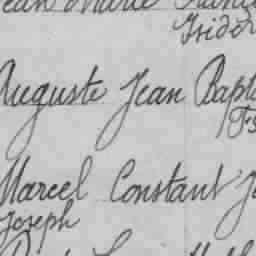 Jean Marie
Isidor
Auguste Jean Bapt
Fs
Marcel Constant J
Joseph